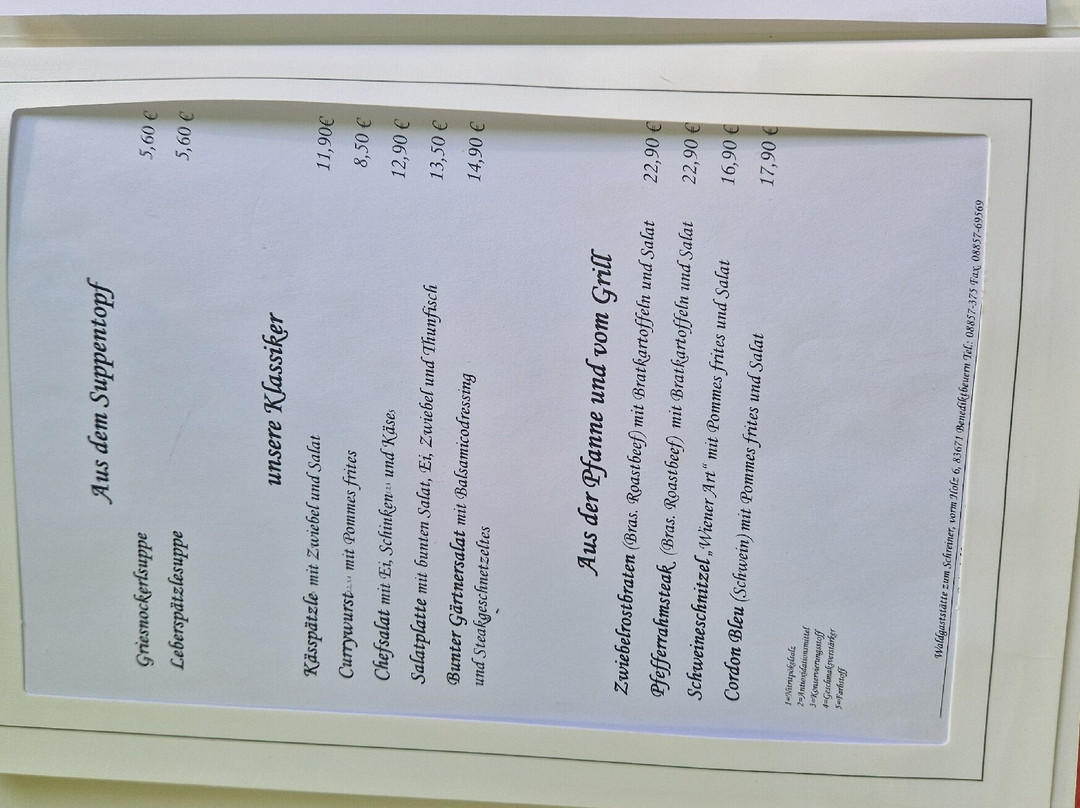 Aus dem Suppentopf
Griesnockerlsuppe 5,60 €
Leberspätzlesuppe 5,60 €
unsere Klassiker
Kässpätzle mit Zwiebel und Salat 11,90€
Currywurst mit Pommes frites 8,50 €
Chefsalat mit Ei, Schinken und Käse 12,90 €
Salatplatte mit bunten Salat, Ei, Zwiebel und Thunfisch 13,50 €
Bunter Gärtnersalat mit Balsamicodressing 14,90 €
und Steakgeschnetzeltes
Aus der Pfanne und vom Grill
Zwiebelrostbraten (Bras. Roastbeef) mit Bratkartoffeln und Salat 22,90 €
Pfefferrahmsteak (Bras. Roastbeef) mit Bratkartoffeln und Salat 22,90 €
Schweineschnitzel „Wiener Art“ mit Pommes frites und Salat 16,90 €
Cordon Bleu (Schwein) mit Pommes frites und Salat 17,90 €
1=Nitritpökelsalz
2=Antioxidationsmittel
3=Konservierungsstoff
4=Geschmaksverstärker
5=Farbstoff
Waldgaststätte zum Schreiner, vorm Holz 6, 83671 Benediktbeuern Tel.: 08857-375 Fax. 08857-69569